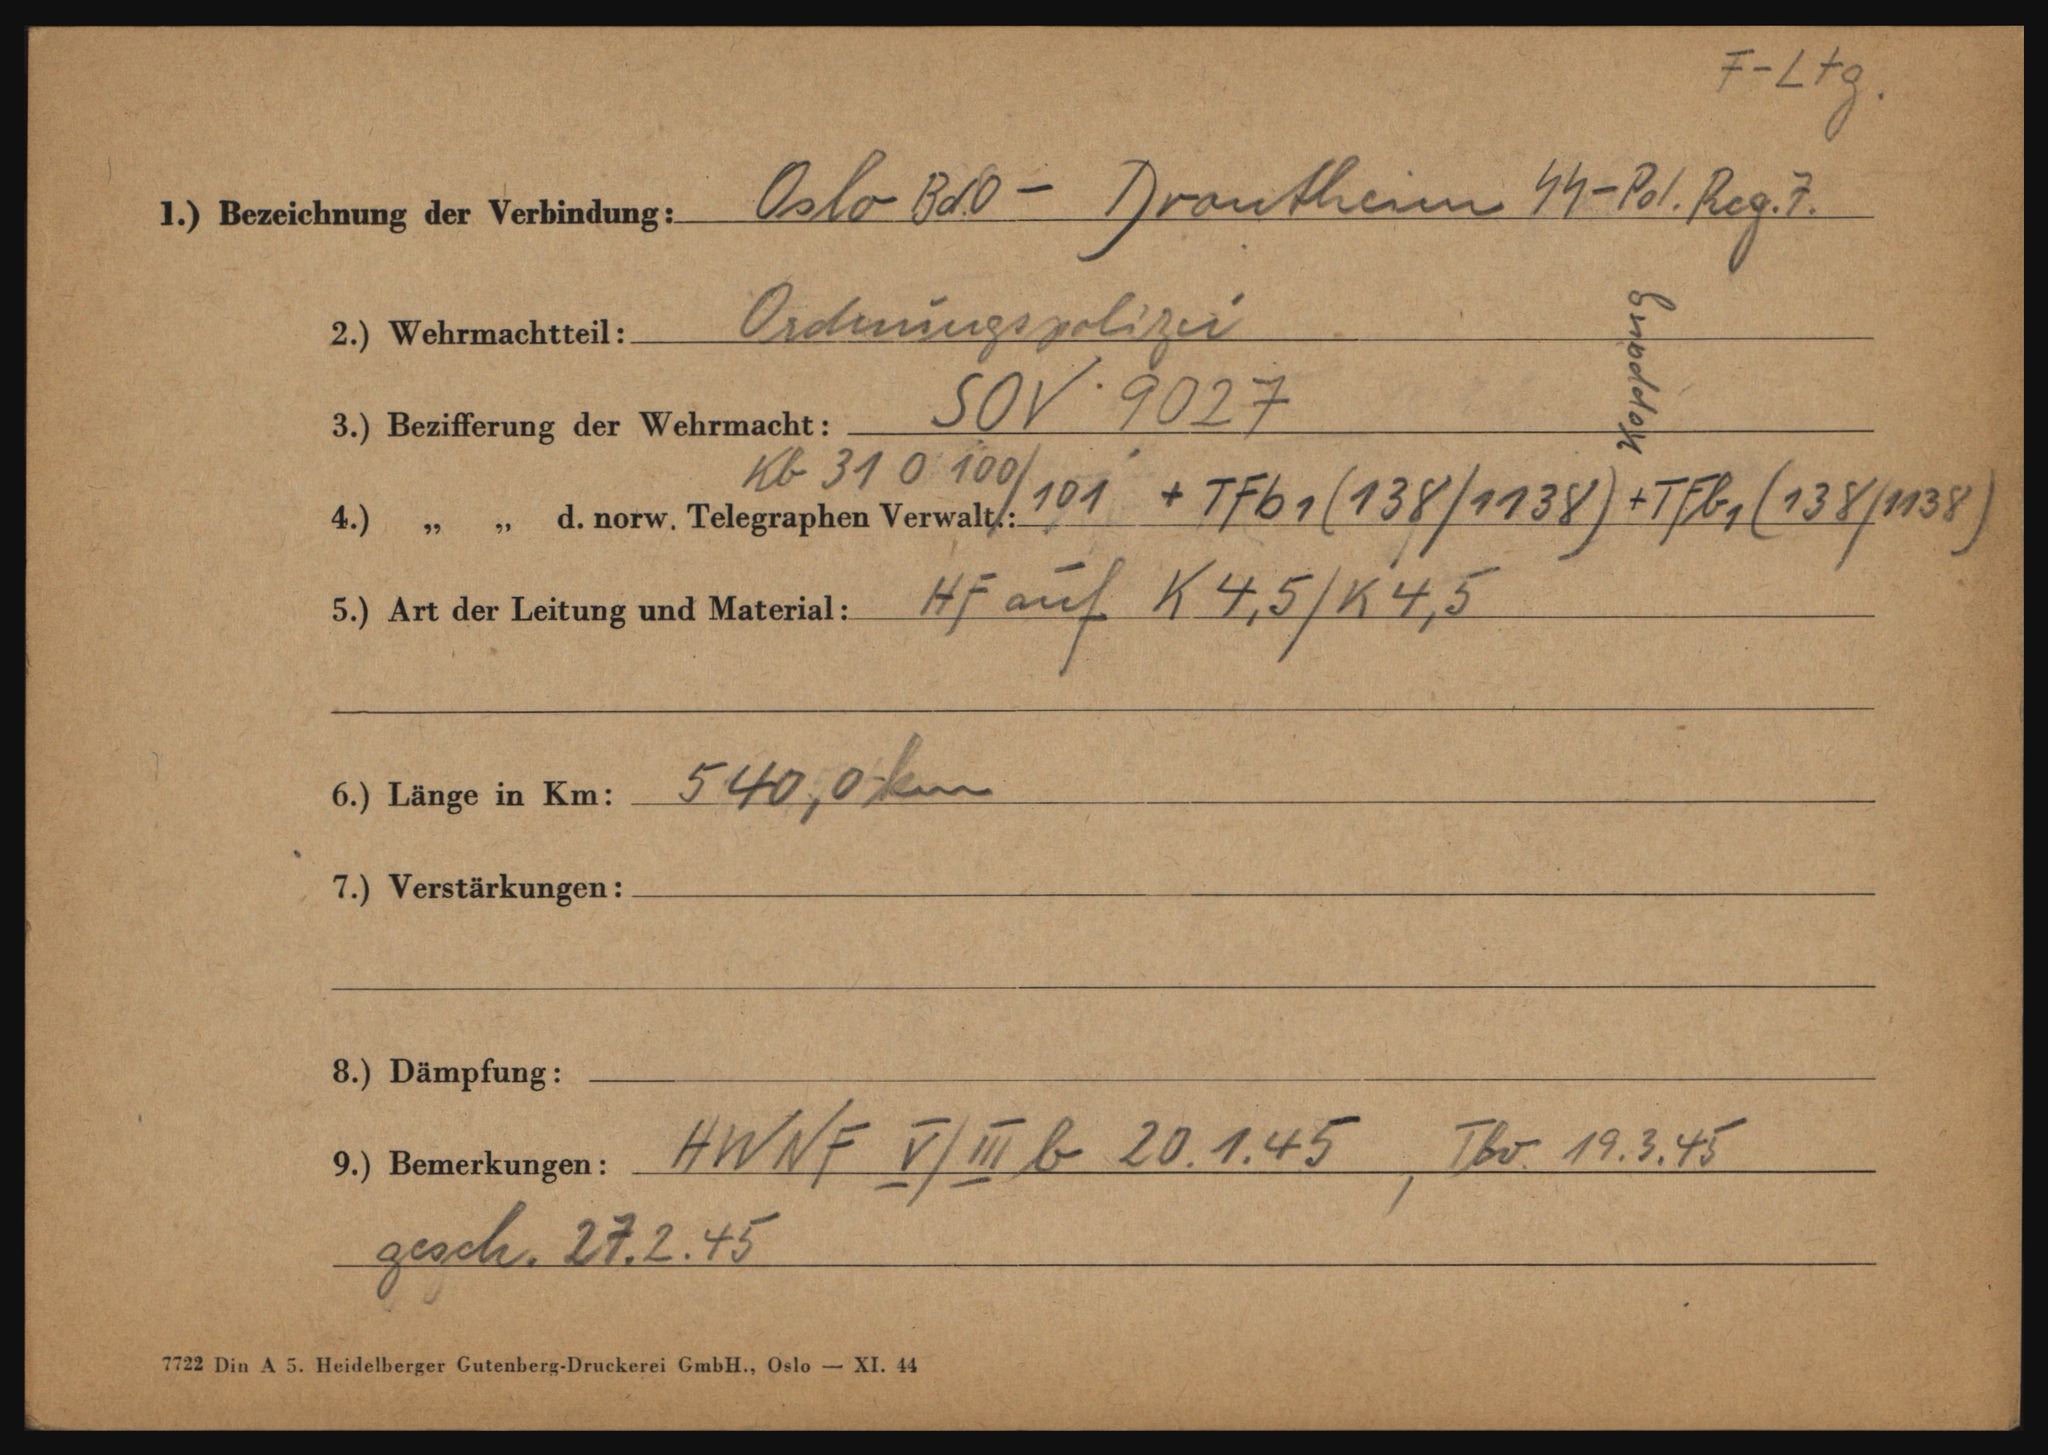 F-Ltg.
1.) Bezeichnung der Verbindung: Oslo BdO – Drontheim SS-Pol. Reg. 7.
2.) Wehrmachtteil: Ordnungspolizei
Koppang
3.) Bezifferung der Wehrmacht: SOV 9027
4.) „ „ d. norw. Telegraphen Verwalt.: Kb 31 0 100/101 + TFb1 (138/1138) + TFb1 (138/1138)
5.) Art der Leitung und Material: HF auf K 4,5/K 4,5
6.) Länge in Km: 540,0 km
7.) Verstärkungen:
8.) Dämpfung:
9.) Bemerkungen: HWNF V/III b 20.1.45, Tbv. 19.3.45
gesch. 27.2.45
7722 Din A 5. Heidelberger Gutenberg-Druckerei GmbH., Oslo — XI. 44